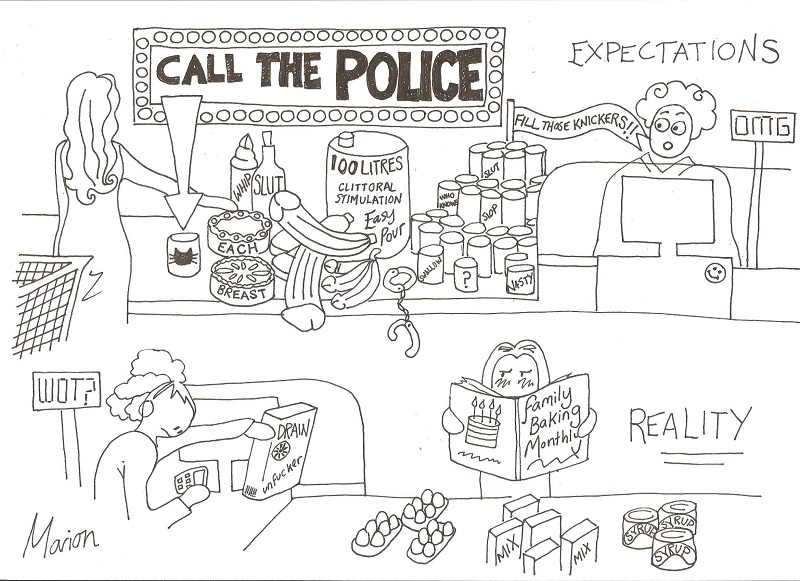 EXPECTATIONS
CALL THE POLICE
FILL THOSE KNICKERS!!
OMG
WHIP
SLUT
100 LITRES
CLITTORAL
STIMULATION
Easy
Pour
SLUT
WHO
KNOWS
SLOP
EACH
BREAST
SWALLOW
?
NASTY
WOT?
DRAIN
unFucker
Family
Baking
Monthly
REALITY
MIX
MIX
SYRUP
SYRUP
SYRUP
Marion